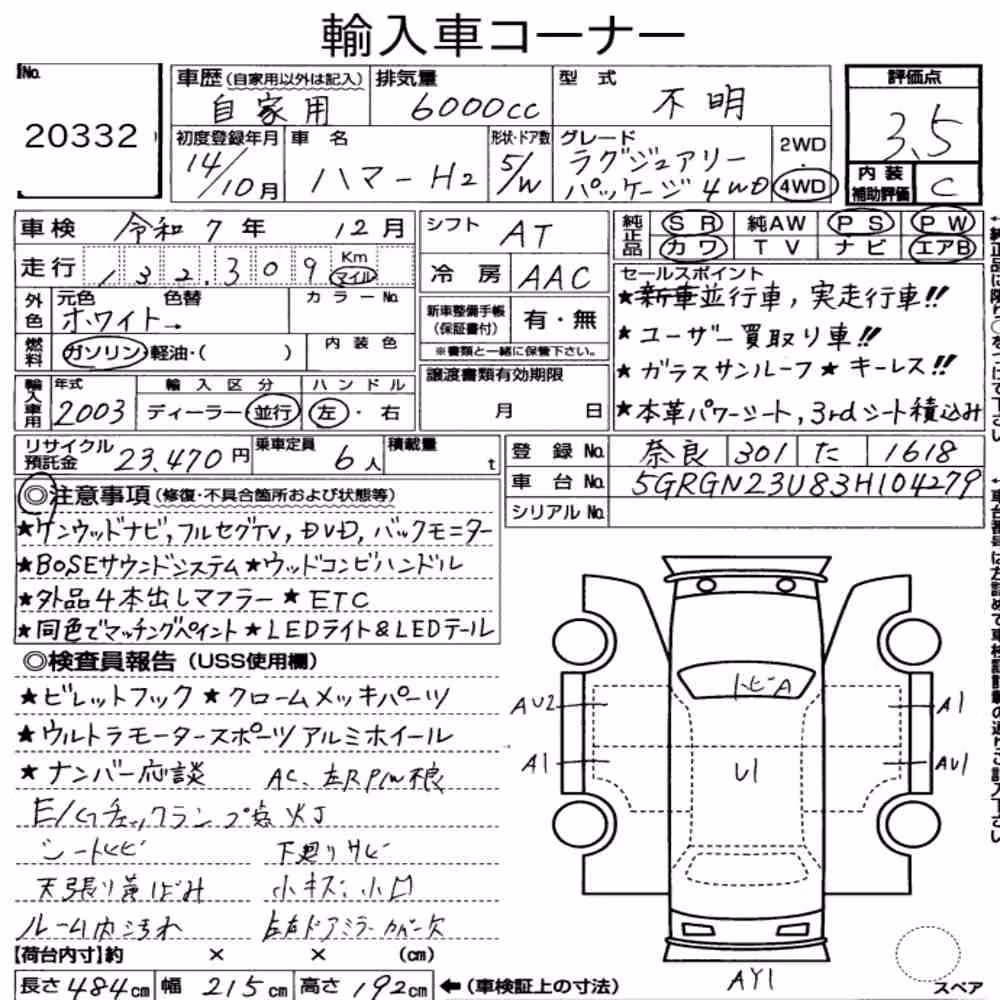 輸入車コーナー
No. 20332
車歴(自家用以外は記入) 自家用
排気量 6000cc
型式 不明
評価点 3.5
初度登録年月 14/10月
車名 ハマーH2
形状・ドア数 5/W
グレード ラグジュアリーパッケージ4WD
2WD・4WD
内装補助評価 C
車検 令和7年12月
シフト AT
純正品 SR 純AW PS PW
カワ TV ナビ エアB
走行 132,309 Km マイル
冷房 AAC
セールスポイント
★新車並行車,実走行車!!
★ユーザー買取り車!!
★ガラスサンルーフ★キーレス!!
★本革パワーシート,3rdシート積込み
外色 元色 色替 カラーNo.
ホワイト→
新車整備手帳(保証書付) 有・無
※書類と一緒に保管下さい。
燃料 ガソリン 軽油・( ) 内装色
譲渡書類有効期限 月 日
輸入車用 年式 2003
輸入区分 ディーラー・並行
ハンドル 左・右
リサイクル預託金 23,470円
乗車定員 6人
積載量 t
登録No. 奈良 301 た 1618
車台No. 5GRGN23U83H104279
シリアルNo.
◎注意事項(修復・不具合箇所および状態等)
★ケンウッドナビ,フルセグTV,DVD,バックモニター
★BOSEサウンドシステム★ウッドコンビハンドル
★外品4本出しマフラー★ETC
★同色でマッチングペイント★LEDライト&LEDテール
◎検査員報告(USS使用欄)
★ビレットフック★クロームメッキパーツ
★ウルトラモータースポーツアルミホイール
★ナンバー応談 AC、左RP/W不良
E/Gチェックランプ点灯
シートヒビ 下廻りサビ
天張り黄ばみ 小キズ、小凹
ルーム内汚れ 左右ドアミラーカバー欠
【荷台内寸】約 × × (cm)
長さ484cm 幅215cm 高さ192cm ←(車検証上の寸法)
トビA
AU2
A1
A1
U1
AU1
AY1
スペア